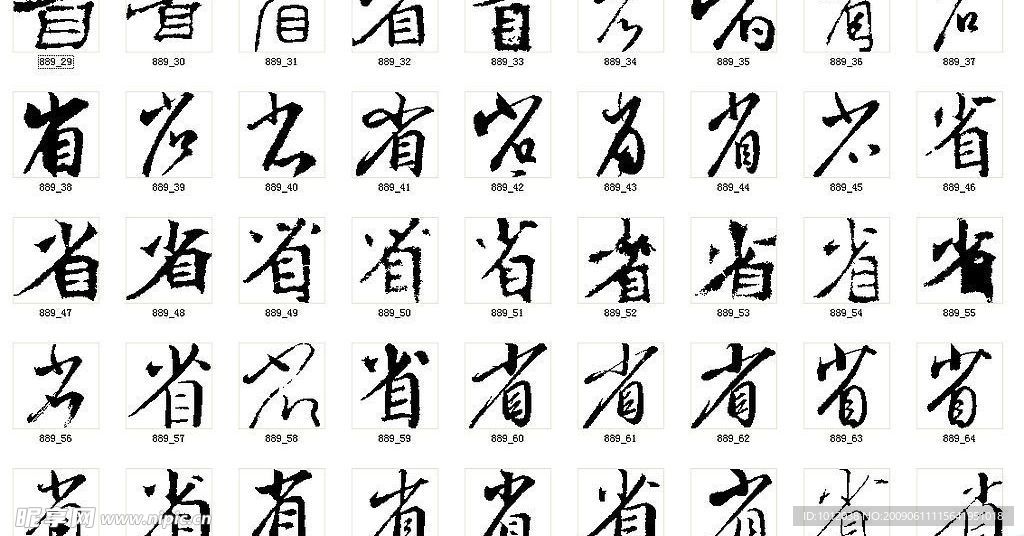 889_29 889_30 889_31 889_32 889_33 889_34 889_35 889_36 889_37
省 省 省 省 省 省 省 省 省
889_38 889_39 889_40 889_41 889_42 889_43 889_44 889_45 889_46
省 省 省 省 省 省 省 省 省
889_47 889_48 889_49 889_50 889_51 889_52 889_53 889_54 889_55
省 省 省 省 省 省 省 省 省
889_56 889_57 889_58 889_59 889_60 889_61 889_62 889_63 889_64
省 省 省 省 省 省 省 省 省
昵享网 www.nipic.cn